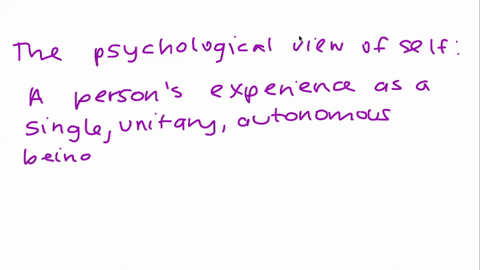 The psychological view of self:
A person's experience as a
single, unitary, autonomous
being